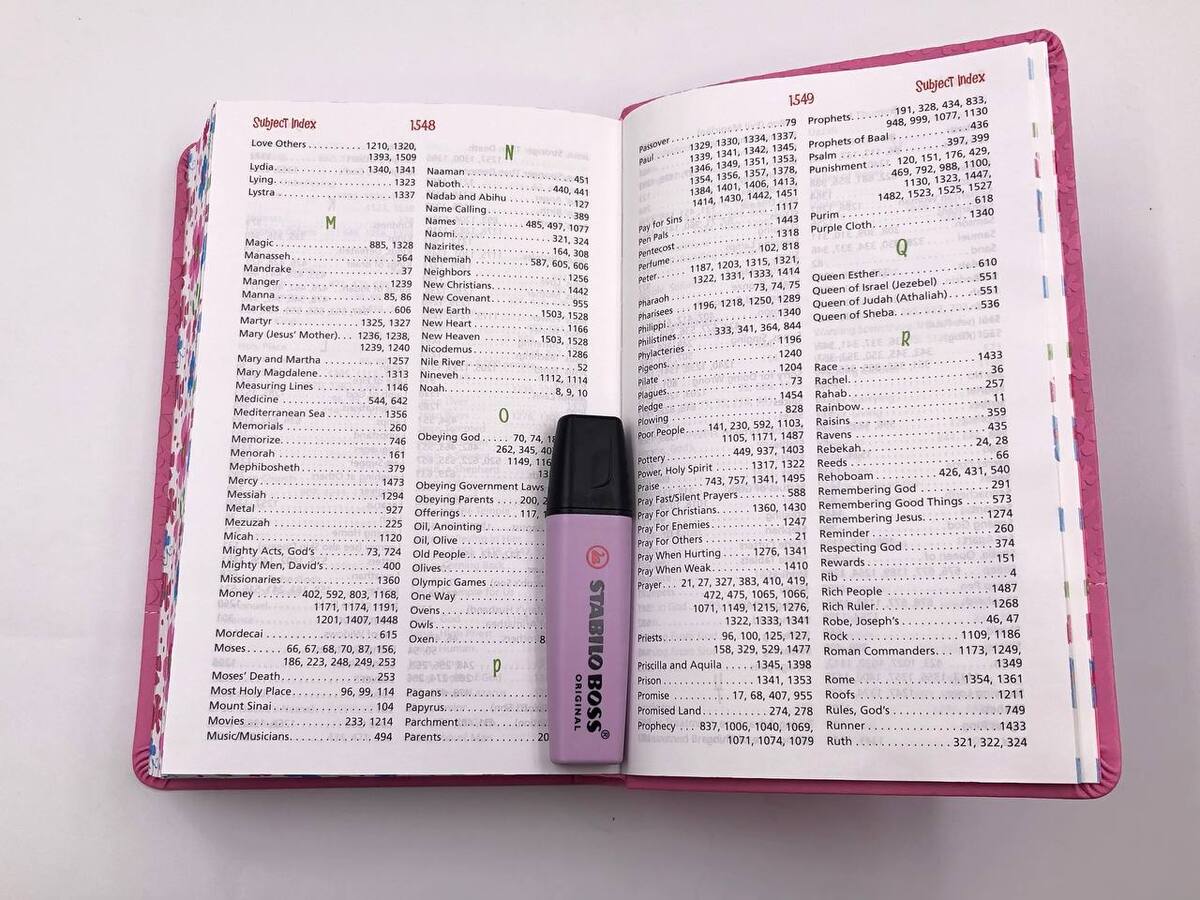 Subject Index
1548
Love Others . . . . . . . . . . 1210, 1320,
1393, 1509
Lydia. . . . . . . . . . . . . . . 1340, 1341
Lying. . . . . . . . . . . . . . . . . . . . 1323
Lystra . . . . . . . . . . . . . . . . . . . 1337
M
Magic . . . . . . . . . . . . . . . 885, 1328
Manasseh . . . . . . . . . . . . . . . . 564
Mandrake . . . . . . . . . . . . . . . . . 37
Manger . . . . . . . . . . . . . . . . . 1239
Manna . . . . . . . . . . . . . . . . . 85, 86
Markets . . . . . . . . . . . . . . . . . . 606
Martyr . . . . . . . . . . . . . . 1325, 1327
Mary (Jesus' Mother). . . 1236, 1238,
1239, 1240
Mary and Martha . . . . . . . . . . 1257
Mary Magdalene . . . . . . . . . . 1313
Measuring Lines . . . . . . . . . . . 1146
Medicine . . . . . . . . . . . . . . 544, 642
Mediterranean Sea . . . . . . . . . 1356
Memorials . . . . . . . . . . . . . . . . 260
Memorize. . . . . . . . . . . . . . . . . 746
Menorah . . . . . . . . . . . . . . . . . 161
Mephibosheth . . . . . . . . . . . . . 379
Mercy . . . . . . . . . . . . . . . . . . . 1473
Messiah . . . . . . . . . . . . . . . . . 1294
Metal . . . . . . . . . . . . . . . . . . . . 927
Mezuzah . . . . . . . . . . . . . . . . . 225
Micah . . . . . . . . . . . . . . . . . . . 1120
Mighty Acts, God's . . . . . . . 73, 724
Mighty Men, David's . . . . . . . . 400
Missionaries . . . . . . . . . . . . . . 1360
Money . . . . . . . 402, 592, 803, 1168,
1171, 1174, 1191,
1201, 1407, 1448
Mordecai . . . . . . . . . . . . . . . . . 615
Moses. . . . . . . 66, 67, 68, 70, 87, 156,
186, 223, 248, 249, 253
Moses' Death. . . . . . . . . . . . . . 253
Most Holy Place. . . . . . . 96, 99, 114
Mount Sinai . . . . . . . . . . . . . . . 104
Movies . . . . . . . . . . . . . . 233, 1214
Music/Musicians. . . . . . . . . . . . 494
N
Naaman. . . . . . . . . . . . . . . . . . 451
Naboth . . . . . . . . . . . . . . 440, 441
Nadab and Abihu . . . . . . . . . . 127
Name Calling . . . . . . . . . . . . . . 389
Names . . . . . . . . . . . 485, 497, 1077
Naomi. . . . . . . . . . . . . . . . 321, 324
Nazirites. . . . . . . . . . . . . . 164, 308
Nehemiah . . . . . . . . . 587, 605, 606
Neighbors . . . . . . . . . . . . . . . 1256
New Christians. . . . . . . . . . . . 1442
New Covenant. . . . . . . . . . . . . 955
New Earth . . . . . . . . . . 1503, 1528
New Heart . . . . . . . . . . . . . . . 1166
New Heaven . . . . . . . . . 1503, 1528
Nicodemus . . . . . . . . . . . . . . . 1286
Nile River . . . . . . . . . . . . . . . . . 52
Nineveh . . . . . . . . . . . . 1112, 1114
Noah. . . . . . . . . . . . . . . . . 8, 9, 10
O
Obeying God . . . . . 70, 74,
262, 345,
1149,
Obeying Government Laws
Obeying Parents . . . . 200,
Offerings . . . . . . . . . 117,
Oil, Anointing
Oil, Olive
Old People. . . . . .
Olives
Olympic Games
One Way
Ovens
Owls
Oxen.
P
Pagans
Papyrus.
Parchment
Parents
STABILO BOSS®
ORIGINAL
1549
Subject Index
Passover . . . . . . . . . . . . . . . . . . 79
Paul . . . . . . . . 1329, 1330, 1334, 1337,
1339, 1341, 1342, 1345,
1346, 1349, 1351, 1353,
1354, 1356, 1357, 1378,
1384, 1401, 1406, 1413,
1414, 1430, 1442, 1451
Pay for Sins . . . . . . . . . . . . . . 1117
Pen Pals . . . . . . . . . . . . . . . . . 1443
Pentecost . . . . . . . . . . . . . . . . 1318
Perfume . . . . . . . . . . . . . . 102, 818
Peter . . . . . . 1187, 1203, 1315, 1321,
1322, 1331, 1333, 1414
Pharaoh . . . . . . . . . . . . . 73, 74, 75
Pharisees . . . . 1196, 1218, 1250, 1289
Philippi . . . . . . . . . . . . . . . . . . 1340
Philistines. . . . . . . 333, 341, 364, 844
Phylacteries . . . . . . . . . . . . . . 1196
Pigeons. . . . . . . . . . . . . . . . . . 1240
Pilate . . . . . . . . . . . . . . . . . . . 1204
Plagues. . . . . . . . . . . . . . . . . . . 73
Pledge . . . . . . . . . . . . . . . . . . 1454
Plowing . . . . . . . . . . . . . . . . . . 828
Poor People . . . . . 141, 230, 592, 1103,
1105, 1171, 1487
Pottery . . . . . . . . . . . 449, 937, 1403
Power, Holy Spirit . . . . . . 1317, 1322
Praise . . . . . . . . . 743, 757, 1341, 1495
Pray Fast/Silent Prayers . . . . . . . 588
Pray For Christians. . . . . . 1360, 1430
Pray For Enemies . . . . . . . . . . . 1247
Pray For Others . . . . . . . . . . . . . 21
Pray When Hurting . . . . . 1276, 1341
Pray When Weak. . . . . . . . . . . 1410
Prayer. . . 21, 27, 327, 383, 410, 419,
472, 475, 1065, 1066,
1071, 1149, 1215, 1276,
1322, 1333, 1341
Priests. . . . . . . . . . 96, 100, 125, 127,
158, 329, 529, 1477
Priscilla and Aquila . . . . . 1345, 1398
Prison . . . . . . . . . . . . . . . 1341, 1353
Promise . . . . . . . . . . 17, 68, 407, 955
Promised Land . . . . . . . . . 274, 278
Prophecy . . . . 837, 1006, 1040, 1069,
1071, 1074, 1079
Prophets. . . . . . . . 191, 328, 434, 833,
948, 999, 1077, 1130
Prophets of Baal . . . . . . . . . . . . 436
Psalm . . . . . . . . . . . . . . . . 397, 399
Punishment . . . . . 120, 151, 176, 429,
469, 792, 988, 1100,
1130, 1323, 1447,
1482, 1523, 1525, 1527
Purim . . . . . . . . . . . . . . . . . . . . 618
Purple Cloth. . . . . . . . . . . . . . 1340
Q
Queen Esther . . . . . . . . . . . . . . 610
Queen of Israel (Jezebel) . . . . . . 551
Queen of Judah (Athaliah) . . . . . 551
Queen of Sheba. . . . . . . . . . . . . 536
R
Race . . . . . . . . . . . . . . . . . . . . 1433
Rachel. . . . . . . . . . . . . . . . . . . . 36
Rahab. . . . . . . . . . . . . . . . . . . . 257
Rainbow . . . . . . . . . . . . . . . . . . 11
Raisins . . . . . . . . . . . . . . . . . . . 359
Ravens . . . . . . . . . . . . . . . . . . . 435
Rebekah. . . . . . . . . . . . . . . . 24, 28
Reeds . . . . . . . . . . . . . . . . . . . . 66
Rehoboam . . . . . . . . . 426, 431, 540
Remembering God . . . . . . . . . . 291
Remembering Good Things . . . . 573
Remembering Jesus. . . . . . . . . 1274
Reminder . . . . . . . . . . . . . . . . . 260
Respecting God . . . . . . . . . . . . 374
Rewards . . . . . . . . . . . . . . . . . . 151
Rib . . . . . . . . . . . . . . . . . . . . . . 4
Rich People . . . . . . . . . . . . . . 1487
Rich Ruler. . . . . . . . . . . . . . . . 1268
Robe, Joseph's . . . . . . . . . . . 46, 47
Rock . . . . . . . . . . . . . . . 1109, 1186
Roman Commanders. . . 1173, 1249,
1349
Rome . . . . . . . . . . . . . . 1354, 1361
Roofs . . . . . . . . . . . . . . . . . . . 1211
Rules, God's . . . . . . . . . . . . . . . 749
Runner . . . . . . . . . . . . . . . . . . 1433
Ruth . . . . . . . . . . . . . 321, 322, 324